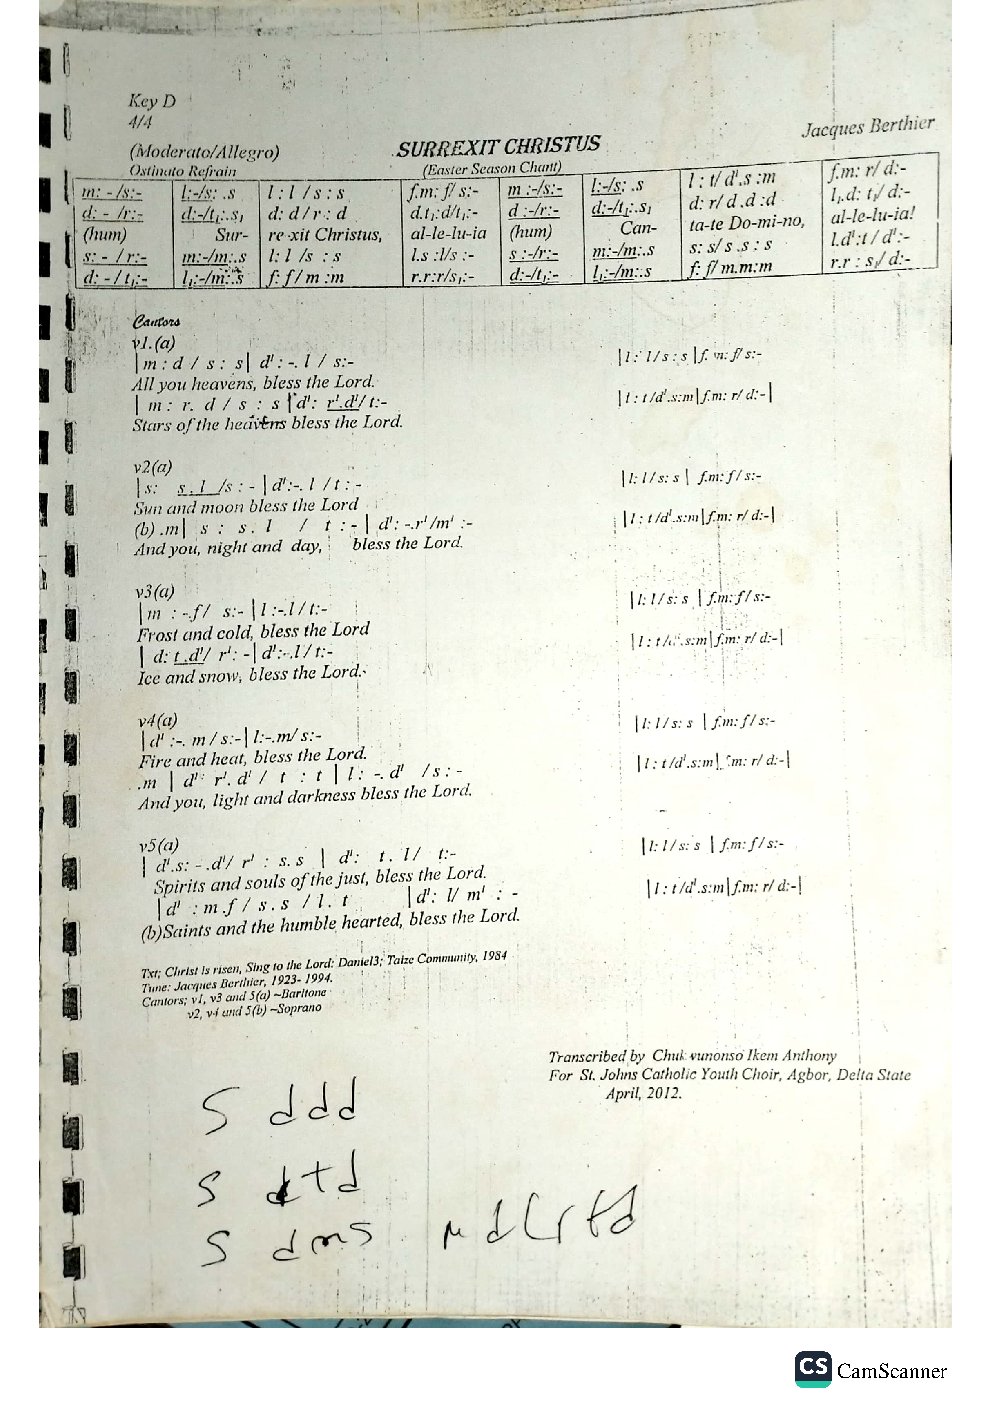 Key D
4/4
Jacques Berthier
(Moderato/Allegro)
SURREXIT CHRISTUS
Ostinato Refrain
(Easter Season Chant)
m: - /s:- | l:-/s: .s | l : l / s : s | f.m: f/ s:- | m :-/s:- | l:-/s: .s | l : t/ d'.s :m | f.m: r/ d:-
d: - /r:- | d:-/t₁:.s₁ | d: d / r : d | d.t₁:d/t₁:- | d :-/r:- | d:-/t₁:.s₁ | d: r/ d .d :d | l₁.d: t₁/ d:-
(hum) | Sur- | re-xit Christus, | al-le-lu-ia | (hum) | Can- | ta-te Do-mi-no, | al-le-lu-ia!
s: - / r:- | m:-/m:.s | l: l /s : s | l.s :l/s :- | s :-/r:- | m:-/m:.s | s: s/ s .s : s | l.d':t / d':-
d: - / t₁:- | l₁:-/m:.s | f: f/ m :m | r.r:r/s₁:- | d:-/t₁:- | l₁:-/m:.s | f: f/ m.m:m | r.r : s₁/ d:-
Cantors
v1.(a)
|m : d / s : s| d' : -. l / s:- |l : l/s : s |f. m: f/ s:-
All you heavens, bless the Lord.
| m : r. d / s : s |d': r'.d'/ t:- |l : t /d'.s:m|f.m: r/ d:-|
Stars of the heavens bless the Lord.
v2(a)
|s: s. l /s : - | d':-. l / t : - |l: l/s: s | f.m: f/s:-
Sun and moon bless the Lord
(b) .m| s : s. l / t : - | d': -.r'/m' :- |l : t /d'.s:m|f.m: r/ d:-|
And you, night and day, bless the Lord.
v3(a)
|m : -.f / s:- |l :-.l / t:- |l: l/ s: s | f.m: f/s:-
Frost and cold, bless the Lord
| d: t .d'/ r': -| d':-.l / t:- |l : t /d'.s:m|f.m: r/ d:-|
Ice and snow, bless the Lord.
v4(a)
|d' :-. m / s:-| l:-.m/ s:- |l: l/ s: s | f.m: f/s:-
Fire and heat, bless the Lord.
.m | d': r'. d' / t : t | l : -. d' /s : - |l : t /d'.s:m|f.m: r/ d:-|
And you, light and darkness bless the Lord.
v5(a)
| d'.s: - .d'/ r' : s. s | d': t. l / t:- |l: l/ s: s | f.m: f/s:-
Spirits and souls of the just, bless the Lord.
|d' : m .f / s . s / l . t |d': l/ m' : - |l : t /d'.s:m|f.m: r/ d:-|
(b)Saints and the humble hearted, bless the Lord.
Txt; Christ is risen, Sing to the Lord: Daniel3; Taize Community, 1984
Tune: Jacques Berthier, 1923- 1994.
Cantors; v1, v3 and 5(a) ~Baritone
v2, v4 and 5(b) ~Soprano
Transcribed by Chukwunonso Ikem Anthony
For St. Johns Catholic Youth Choir, Agbor, Delta State
April, 2012.
S d d d
S d t d
S d m s m d l r t d
CS CamScanner